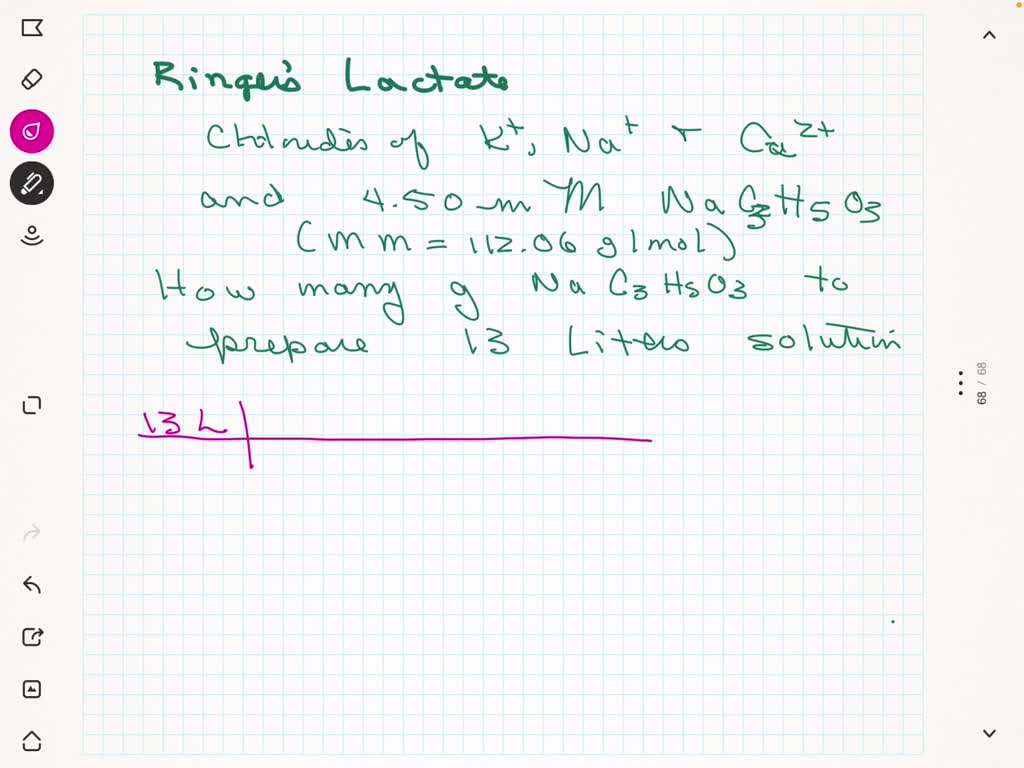 Ringer's Lactate
Chlorides of K⁺, Na⁺ + Ca²⁺
and 4.50 mM NaC₃H₅O₃
(mm = 112.06 g/mol)
How many g NaC₃H₅O₃ to
prepare 13 Liters solution
13 L
68 / 68